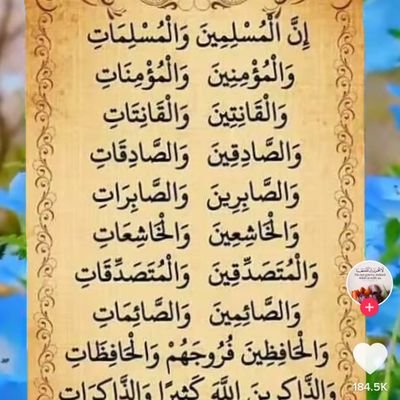 إِنَّ الْمُسْلِمِينَ وَالْمُسْلِمَاتِ
وَالْمُؤْمِنِينَ وَالْمُؤْمِنَاتِ
وَالْقَانِتِينَ وَالْقَانِتَاتِ
وَالصَّادِقِينَ وَالصَّادِقَاتِ
وَالصَّابِرِينَ وَالصَّابِرَاتِ
وَالْخَاشِعِينَ وَالْخَاشِعَاتِ
وَالْمُتَصَدِّقِينَ وَالْمُتَصَدِّقَاتِ
وَالصَّائِمِينَ وَالصَّائِمَاتِ
وَالْحَافِظِينَ فُرُوجَهُمْ وَالْحَافِظَاتِ
وَالذَّاكِرِينَ اللَّهَ كَثِيرًا وَالذَّاكِرَاتِ
184.5K